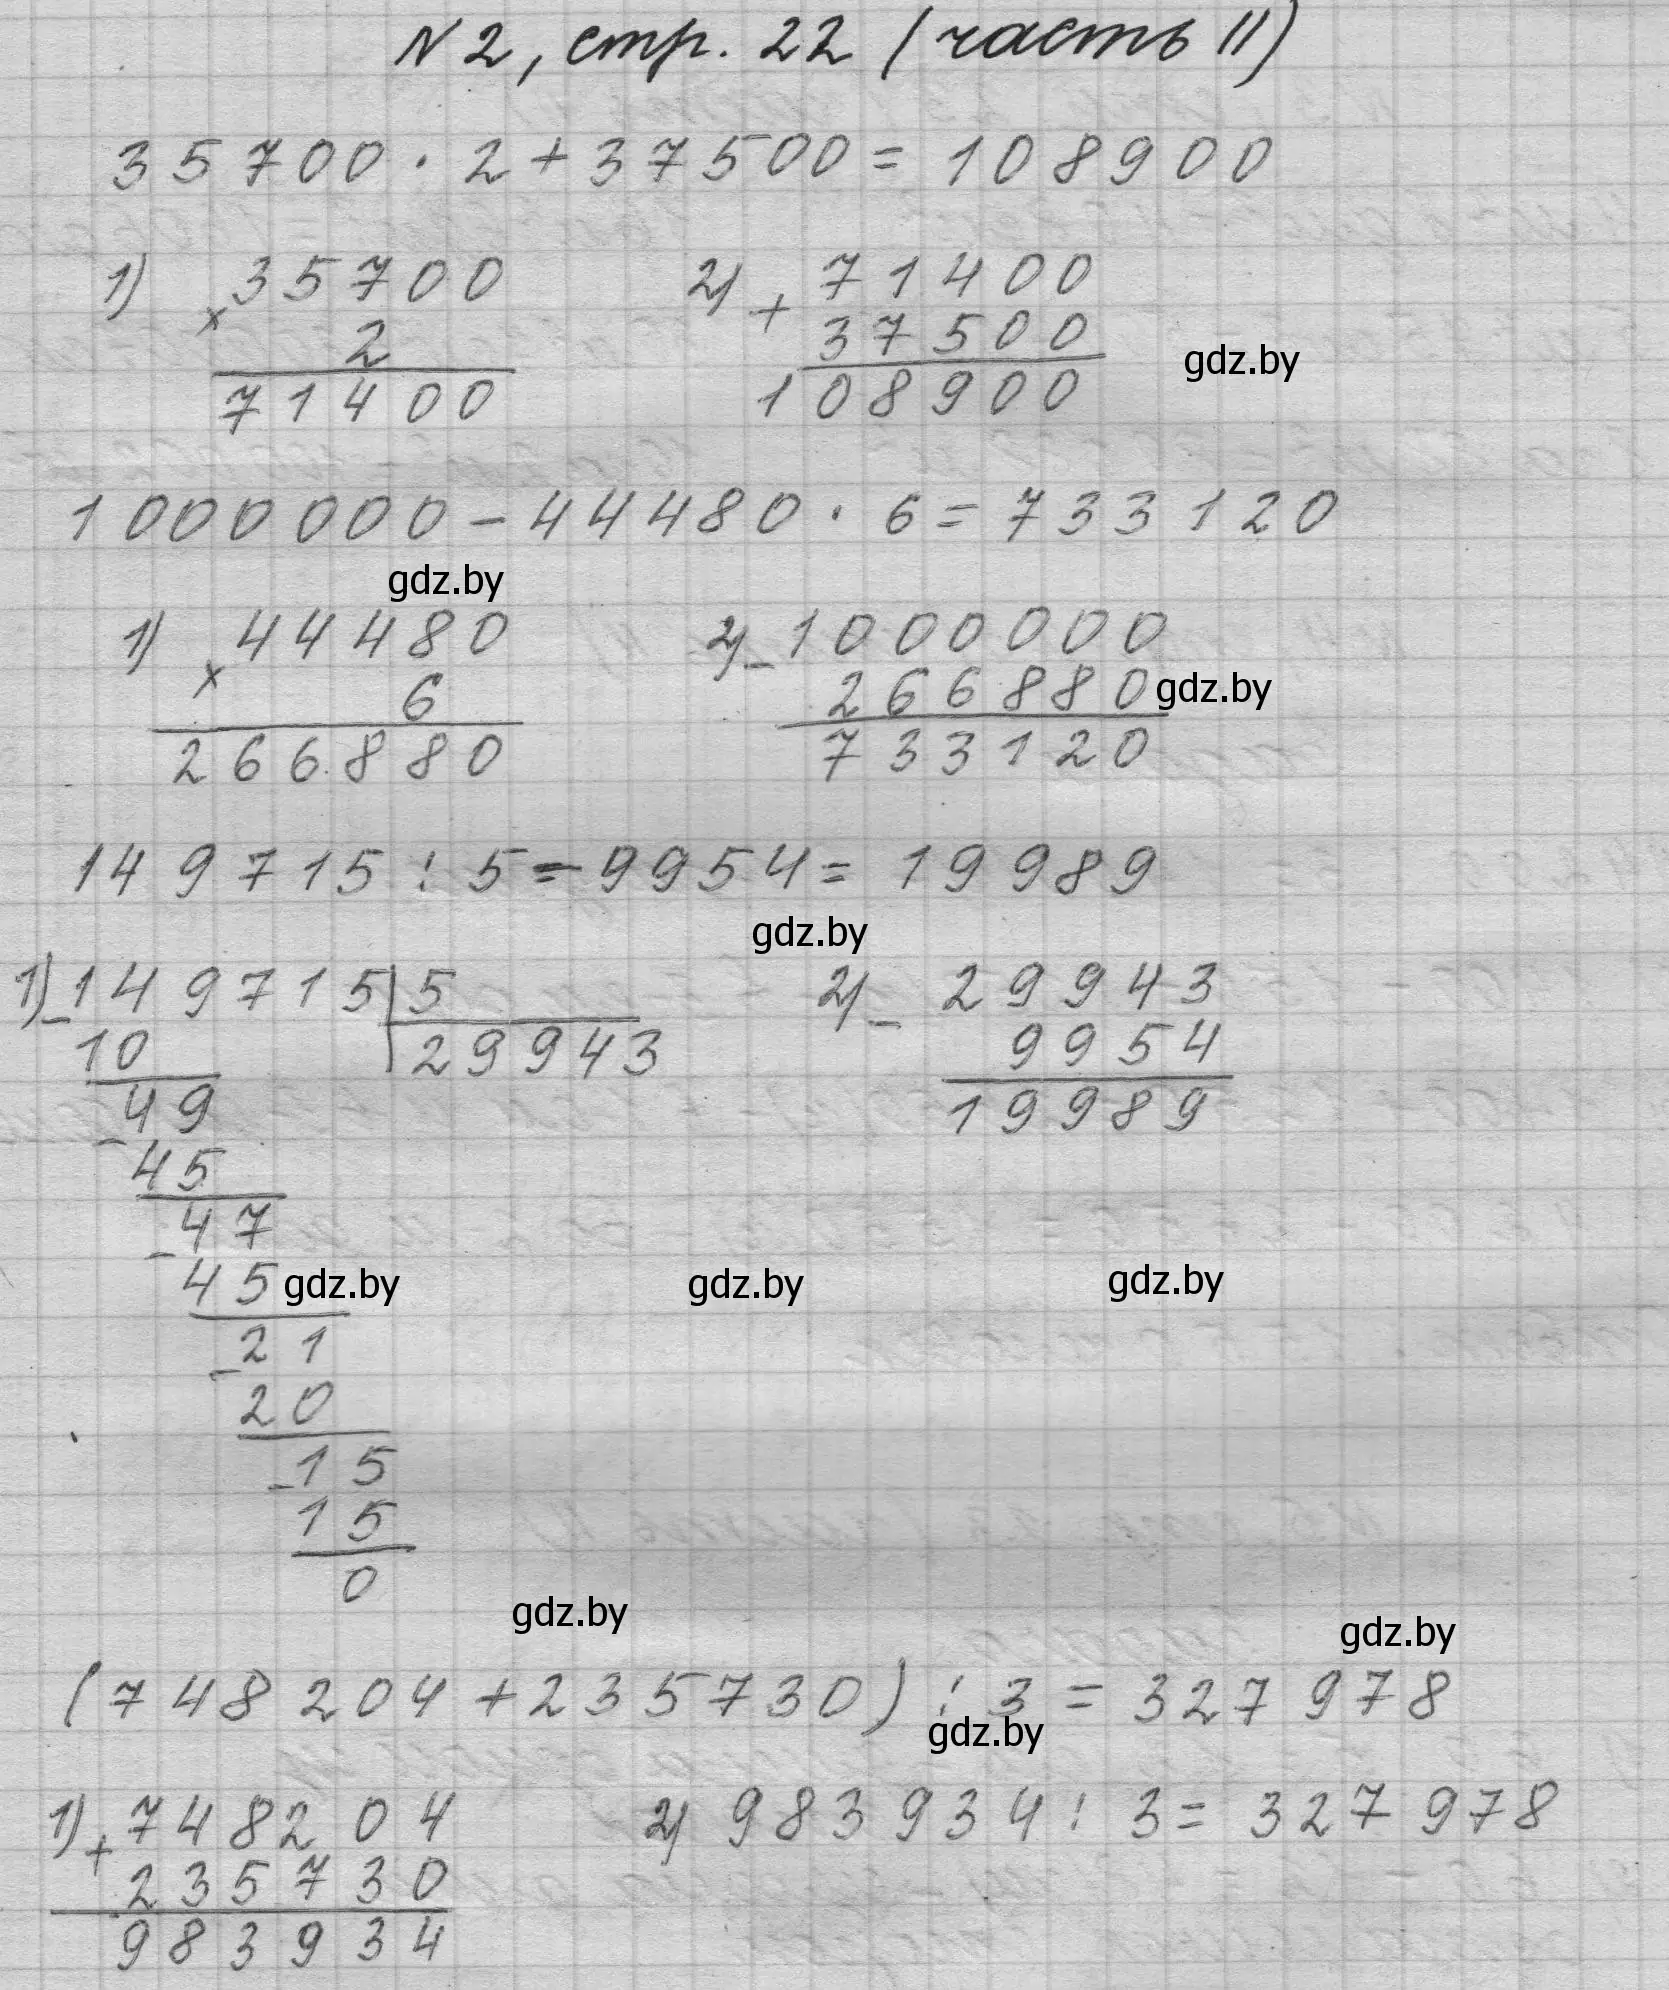 N 2, стр. 22 (часть II)
35700 · 2 + 37500 = 108900
1) × 35700
2
71400
2) + 71400
37500
108900
gdz.by
1000000 - 44480 · 6 = 733120
gdz.by
1) × 44480
6
266880
2) - 1000000
266880
733120
gdz.by
149715 : 5 = - 9954 = 19989
gdz.by
1) - 149715 | 5
10 29943
49
- 45
- 47
45
- 21
20
- 15
15
0
2) - 29943
9954
19989
gdz.by gdz.by gdz.by
gdz.by gdz.by
(748204 + 235730) : 3 = 327978
gdz.by
1) + 748204
235730
983934
2) 983934 : 3 = 327978